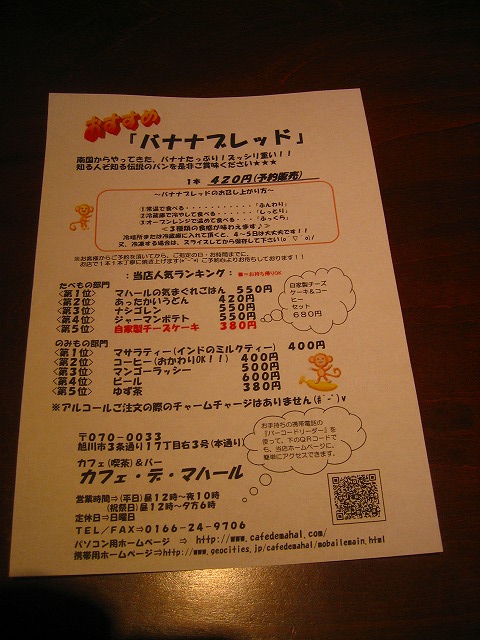 おすすめ
「バナナブレッド」
南国からやってきた、バナナたっぷり！ズッシリ重い！！
知る人ぞ知る伝説のパンを是非ご賞味ください★★★
1本 420円(予約販売)
～バナナブレッドのお召し上がり方～
①常温で食べる・・・・・・・・・・・「ふんわり」
②冷蔵庫で冷やして食べる・・・・・・「しっとり」
③オーブンレンジで温めて食べる・・・「ふっくら」
＜３種類の食感が味わえます♪＞
冷暗所または冷蔵庫に入れて頂くと、４～５日は大丈夫です！！
又、冷凍する場合は、スライスしてから保存して下さい(o゜▽゜o)/
※お客様からご予約を頂いてから、ご指定の日・お時間までに、
お店で１本１本丁寧に焼き上げます！ご予約心よりお待ちしております！！
：当店人気ランキング：
■＝お持ち帰りOK
たべもの部門
＜第１位＞ マハールの気まぐれごはん 550円
＜第２位＞ あったかいうどん 420円
＜第３位＞ ナシゴレン 550円
＜第４位＞ ジャーマンポテト 550円
＜第５位＞ 自家製チーズケーキ 380円
自家製チーズ
ケーキ＆コー
ヒー
セット
６８０円
のみもの部門
＜第１位＞ マサラティー(インドのミルクティー) 400円
＜第２位＞ コーヒー(おかわりOK！！) 400円
＜第３位＞ マンゴーラッシー 500円
＜第４位＞ ビール 600円
＜第５位＞ ゆず茶 380円
※アルコールご注文の際のチャームチャージはありません(#^-^)v
〒070-0033
旭川市３条通り１７丁目右３号(本通り)
カフェ(喫茶)＆バー
カフェ・デ・マハール
お手持ちの携帯電話の
『バーコードリーダー』を
使って、下のQRコードで
も、当店ホームページに、
簡単にアクセスできます。
営業時間⇒(平日)昼12時～夜10時
(祝祭日)昼12時～夕方6時
定休日⇒日曜日
TEL/FAX⇒0166-24-9706
パソコン用ホームページ ⇒ http://www.cafedemahal.com/
携帯用ホームページ⇒http://www.geocities.jp/cafedemahal/mobailemain.html